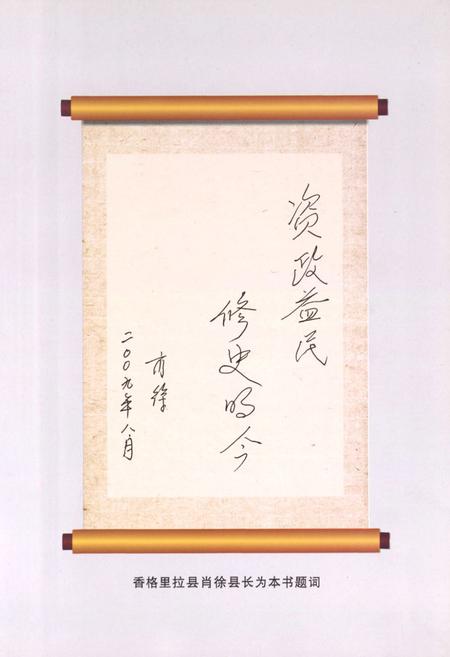 资政益民
修史明今
肖徐
二00九年八月
香格里拉县肖徐县长为本书题词